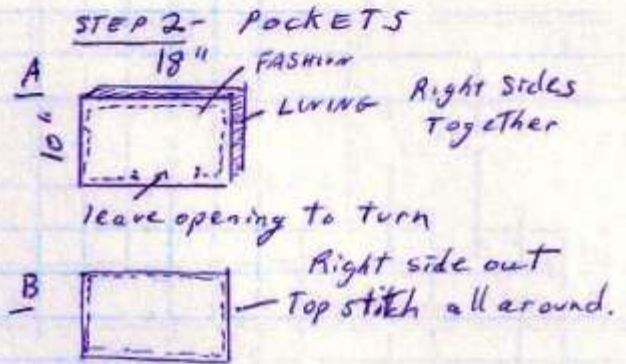 STEP 2 - POCKETS
18"
FASHION
A
LINING
Right Sides
Together
10"
leave opening to turn
Right side out
B
Top stitch all around.